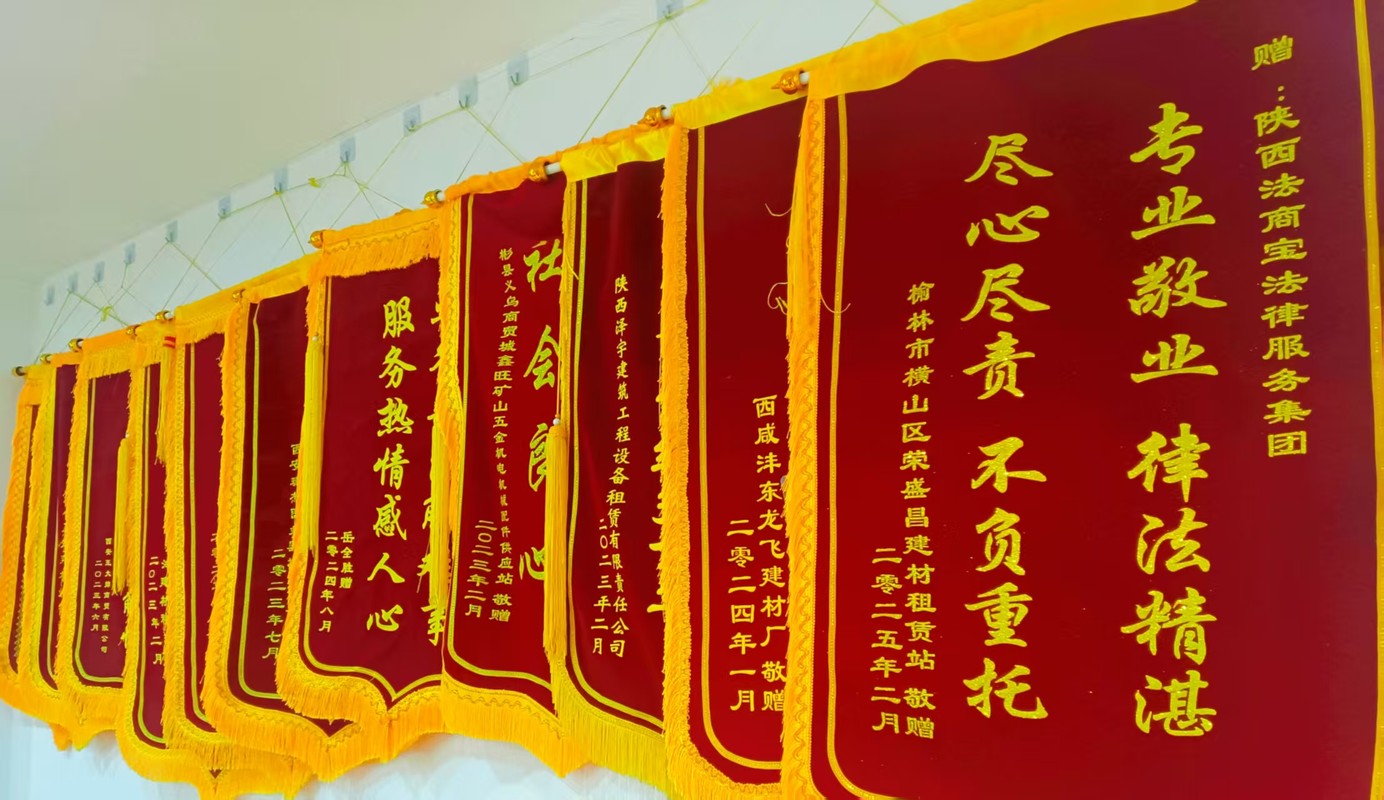 赠：陕西法商宝法律服务集团
专业敬业 律法精湛
尽心尽责 不负重托
榆林市横山区荣盛昌建材租赁站 敬赠
二零二五年二月
西咸沣东龙飞建材厂 敬赠
二零二四年一月
陕西泽宇建筑工程设备租赁有限责任公司
二〇二三年二月
社会良心
彬县义乌商贸城鑫旺矿山五金机电机械配件供应站 敬赠
二〇二三年二月
服务热情感人心
岳全胜赠
二零二四年八月
二零二三年七月
二〇二三年二月
二〇二三年六月